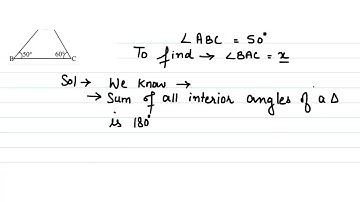 ∠ABC = 50°
To find → ∠BAC = x
50°
60°
B
C
Sol → We know →
→ Sum of all interior angles of a Δ
is 180°